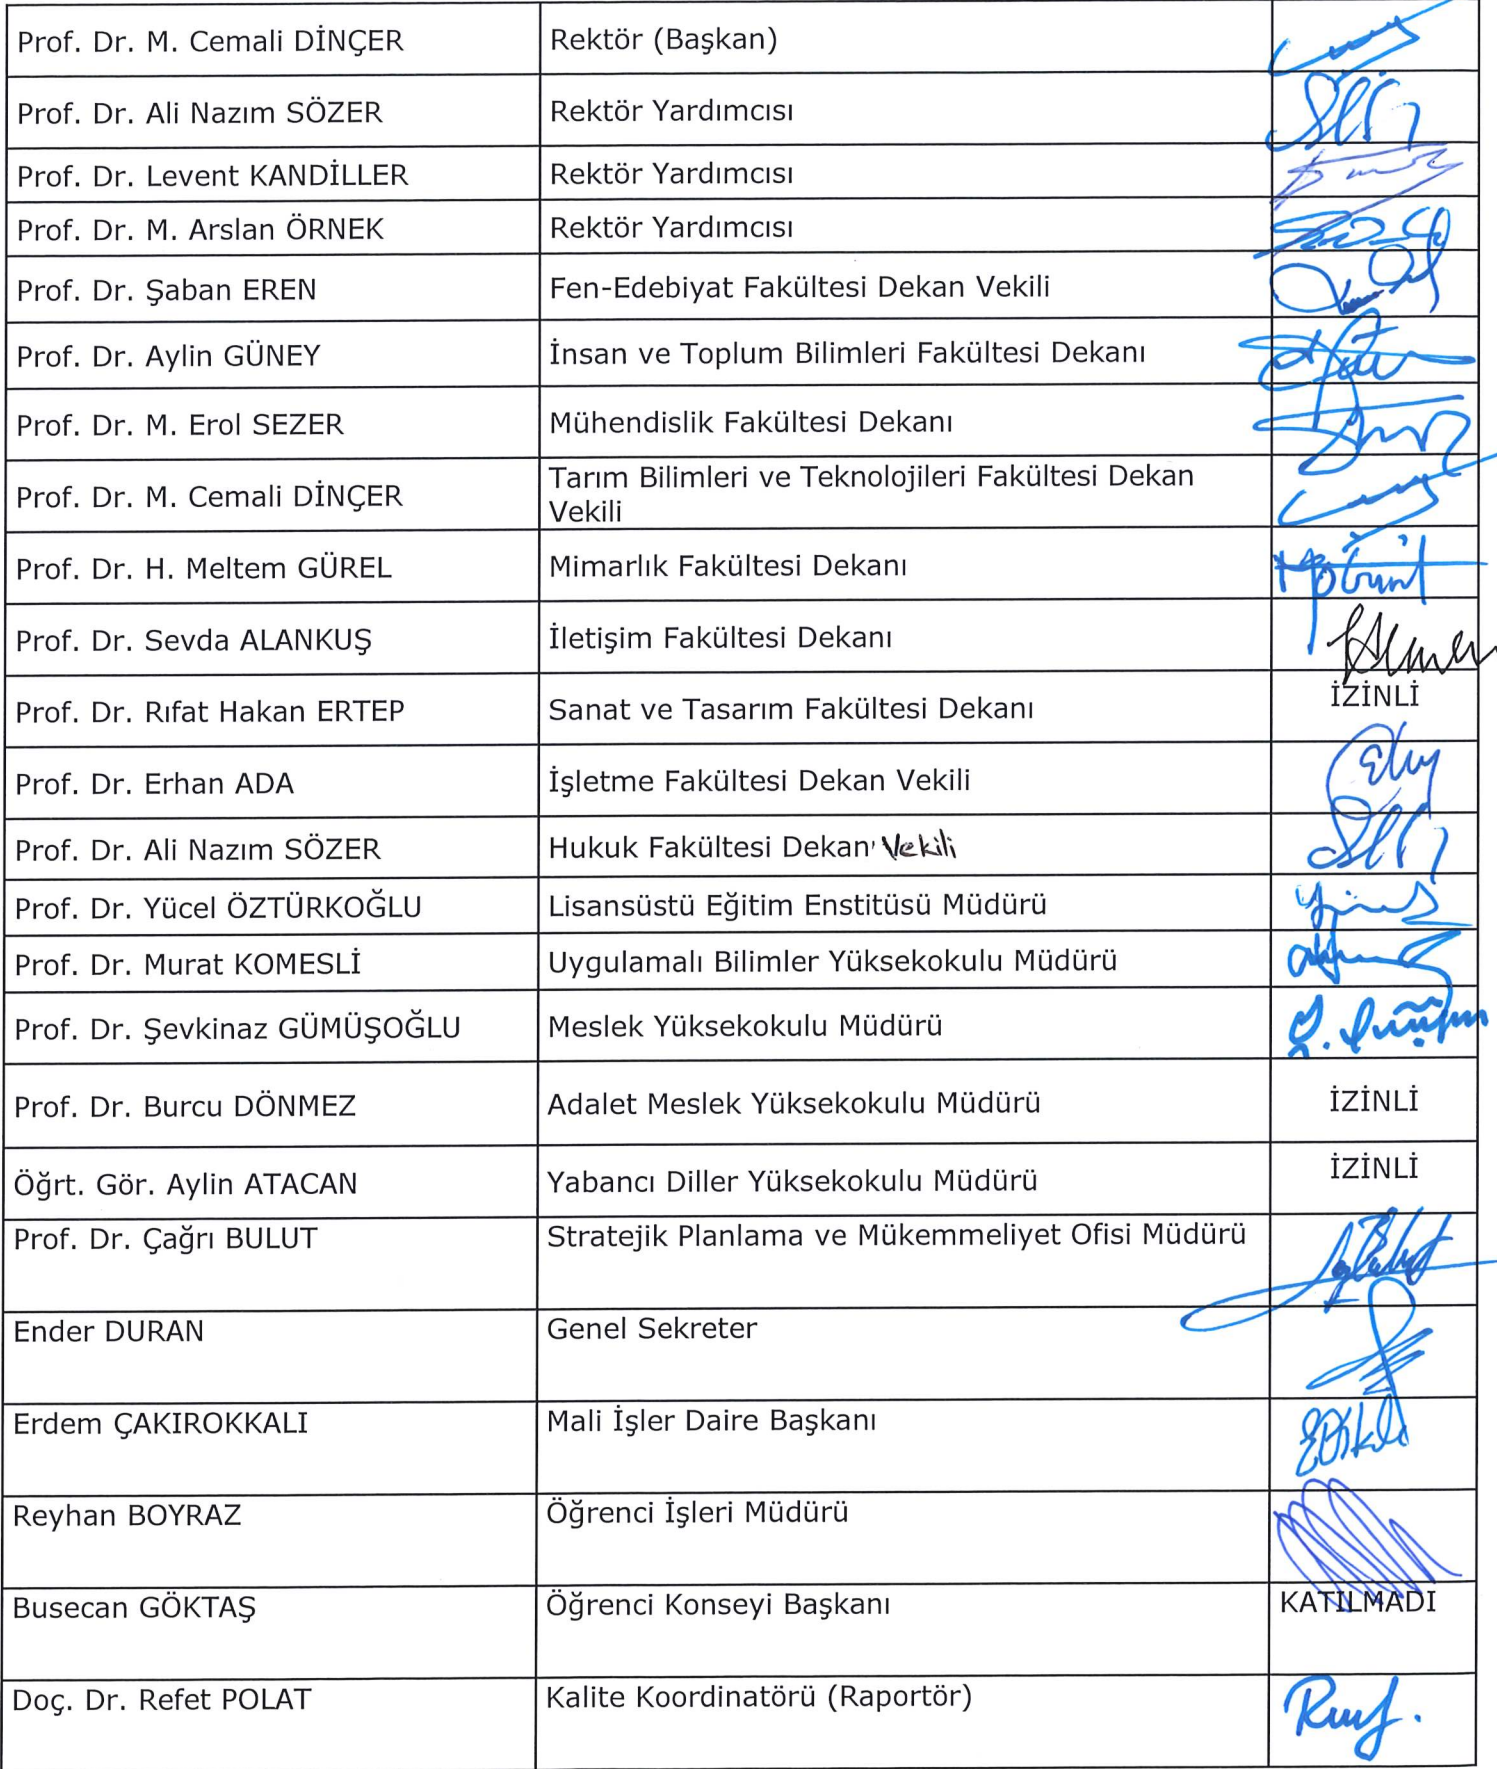 Prof. Dr. M. Cemali DİNÇER Rektör (Başkan)
Prof. Dr. Ali Nazım SÖZER Rektör Yardımcısı
Prof. Dr. Levent KANDİLLER Rektör Yardımcısı
Prof. Dr. M. Arslan ÖRNEK Rektör Yardımcısı
Prof. Dr. Şaban EREN Fen-Edebiyat Fakültesi Dekan Vekili
Prof. Dr. Aylin GÜNEY İnsan ve Toplum Bilimleri Fakültesi Dekanı
Prof. Dr. M. Erol SEZER Mühendislik Fakültesi Dekanı
Prof. Dr. M. Cemali DİNÇER Tarım Bilimleri ve Teknolojileri Fakültesi Dekan
Vekili
Prof. Dr. H. Meltem GÜREL Mimarlık Fakültesi Dekanı
Prof. Dr. Sevda ALANKUŞ İletişim Fakültesi Dekanı
Prof. Dr. Rıfat Hakan ERTEP Sanat ve Tasarım Fakültesi Dekanı İZİNLİ
Prof. Dr. Erhan ADA İşletme Fakültesi Dekan Vekili
Prof. Dr. Ali Nazım SÖZER Hukuk Fakültesi Dekan Vekili
Prof. Dr. Yücel ÖZTÜRKOĞLU Lisansüstü Eğitim Enstitüsü Müdürü
Prof. Dr. Murat KOMESLİ Uygulamalı Bilimler Yüksekokulu Müdürü
Prof. Dr. Şevkinaz GÜMÜŞOĞLU Meslek Yüksekokulu Müdürü
Prof. Dr. Burcu DÖNMEZ Adalet Meslek Yüksekokulu Müdürü İZİNLİ
Öğrt. Gör. Aylin ATACAN Yabancı Diller Yüksekokulu Müdürü İZİNLİ
Prof. Dr. Çağrı BULUT Stratejik Planlama ve Mükemmeliyet Ofisi Müdürü
Ender DURAN Genel Sekreter
Erdem ÇAKIROKKALI Mali İşler Daire Başkanı
Reyhan BOYRAZ Öğrenci İşleri Müdürü
Busecan GÖKTAŞ Öğrenci Konseyi Başkanı KATILMADI
Doç. Dr. Refet POLAT Kalite Koordinatörü (Raportör)